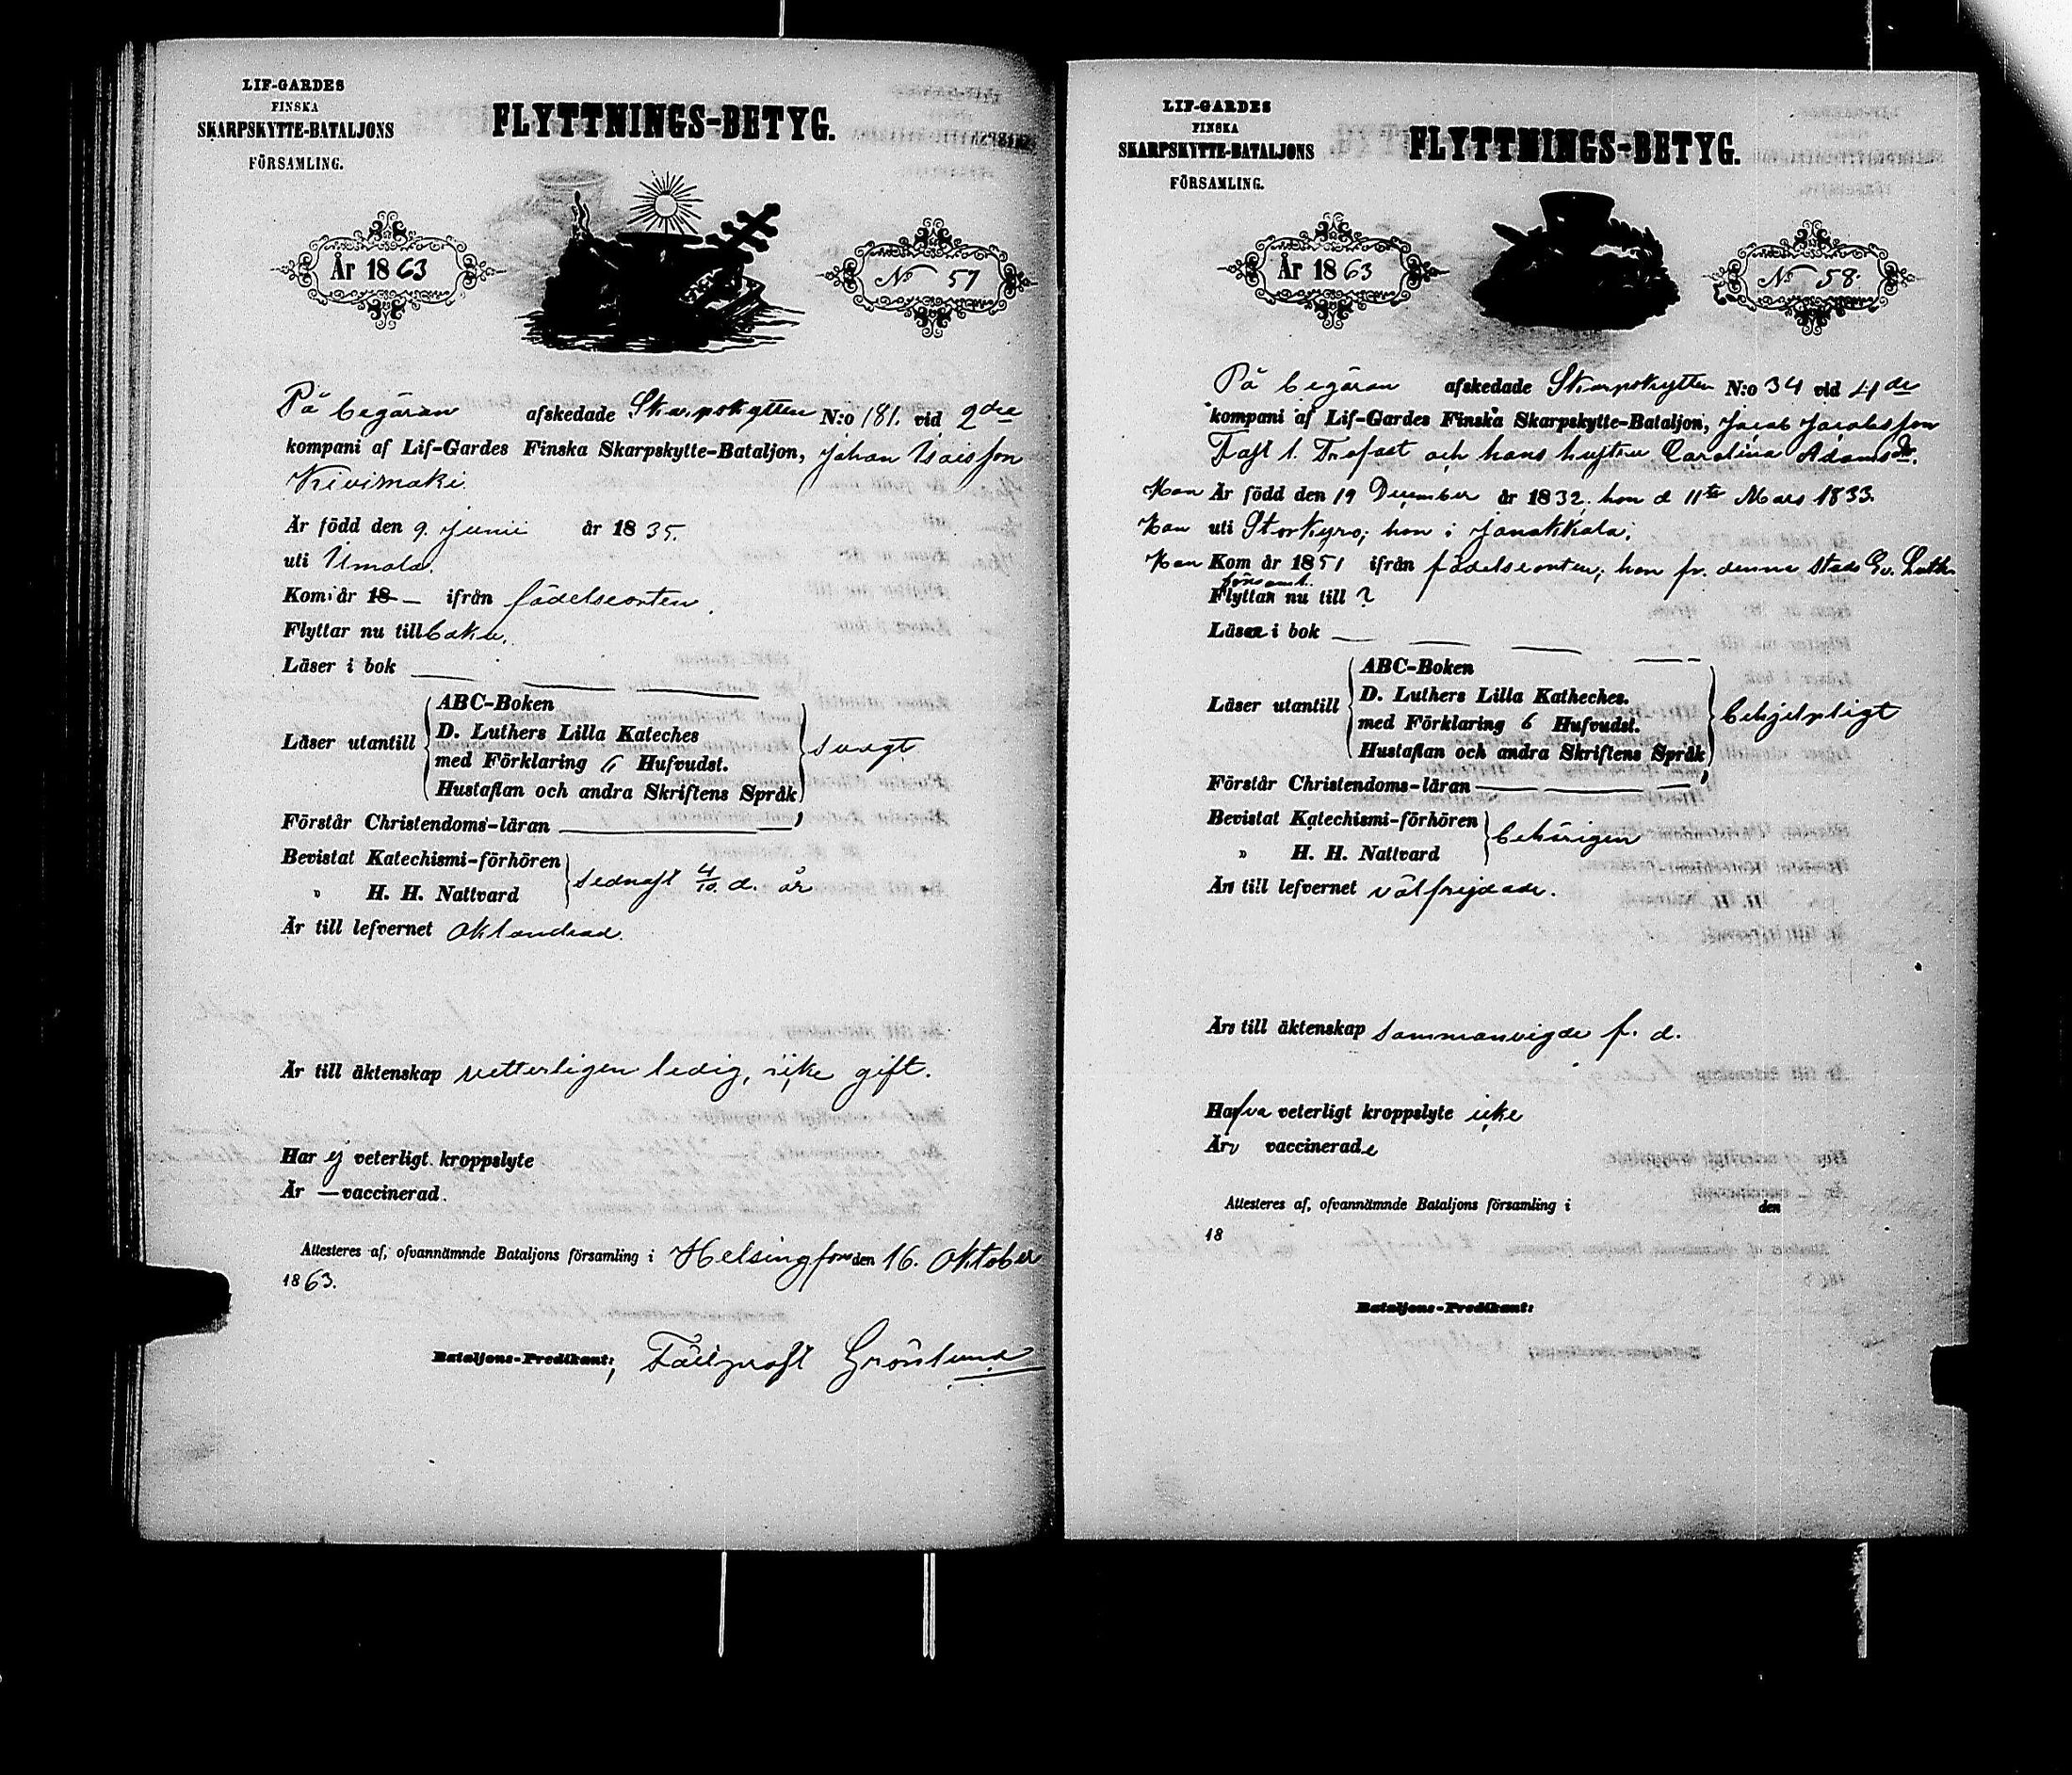 LIF-GARDES
FINSKA
SKARPSKYTTE-BATALJONS
FÖRSAMLING.
FLYTTNINGS-BETYG.
År 1863
No 57
På begäran afskedade Skarpskytten N:o 181. vid 2dre
kompani af Lif-Gardes Finska Skarpskytte-Bataljon, Johan Isaisson
Kivimäki
Är född den 9. Junii år 1835.
uti Ilmola.
Kom år 18 — ifrån födelseorten.
Flyttar nu tillbaka.
Läser i bok
Läser utantill
ABC-Boken
D. Luthers Lilla Kateches
med Förklaring 6 Hufvudst.
Hustaflan och andra Skriftens Språk
svagt.
Förstår Christendoms-läran
Bevistat Katechismi-förhören
" H. H. Nattvard
sednast 4/10 d. år
Är till lefvernet oklandrad.
Är till äktenskap vetterligen ledig, icke gift.
Har ej veterligt kroppslyte
Är — vaccinerad.
Attesteres af, ofvannämnde Bataljons församling i Helsingfors den 16. Oktober
1863.
Bataljons-Predikant: Fältprost Grönlund
LIF-GARDES
FINSKA
SKARPSKYTTE-BATALJONS
FÖRSAMLING.
FLYTTNINGS-BETYG.
År 1863
No 58.
På begäran afskedade Skarpskytten N:o 34 vid 4de
kompani af Lif-Gardes Finska Skarpskytte-Bataljon, Jacob Jacobsson
Fast l. Trofast och hans hustru Carolina Adamsdr.
Han Är född den 19 December år 1832, hon d 11te Mars 1833.
Han uti Storkyro; hon i Janakkala;
Han Kom år 1851 ifrån födelseorten; hon fr. denna stads Ev. Luth.
församl.
Flytta nu till?
Läsa i bok
Läser utantill
ABC-Boken
D. Luthers Lilla Katheches.
med Förklaring 6 Hufvudst.
Hustaflan och andra Skriftens Språk
behjelpligt
Förstår Christendoms-läran
Bevistat Katechismi-förhören
" H. H. Nattvard
behörigen
Är till lefvernet välfrejdade.
Äro till äktenskap sammanvigde f. d.
Hafva veterligt kroppslyte icke
Äro vaccinerade
Attesteres af, ofvannämnde Bataljons församling i den
18
Bataljons-Predikant: